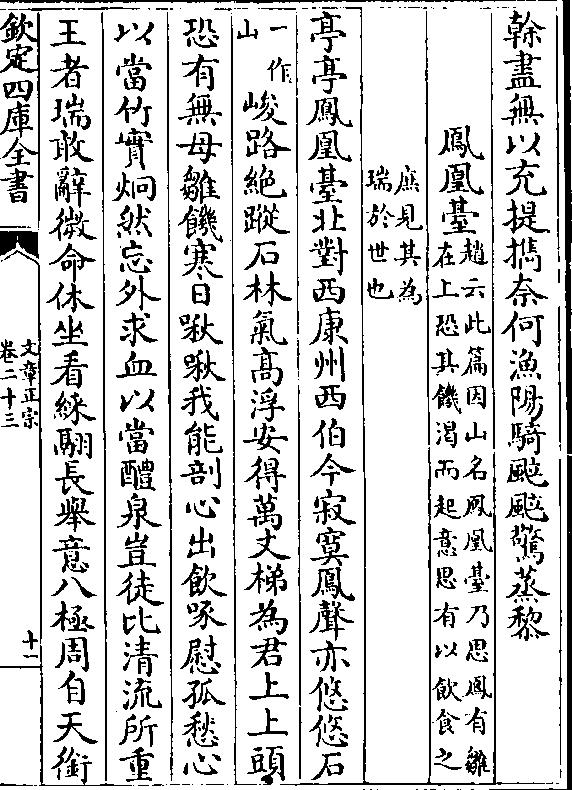 榦盡無以充提攜奈何漁陽騎颷颷驚蒸黎
鳳凰臺趙云此篇因山名鳳凰臺乃思鳳有雛
在上恐其饑渴而起意思有以飲食之
庶見其為
瑞於世也
亭亭鳳凰臺北對西康州西伯今寂寞鳳聲亦悠悠石
一作
山
峻路絶蹤石林氣髙浮安得萬丈梯為君上上頭
恐有無母雛饑寒日啾啾我能剖心出飲啄慰孤愁心
以當竹實炯然忘外求血以當醴泉豈徒比清流所重
王者瑞敢辭微命休坐看綵翮長舉意八極周自天銜
欽定四庫全書
文章正宗
卷二十三
十一